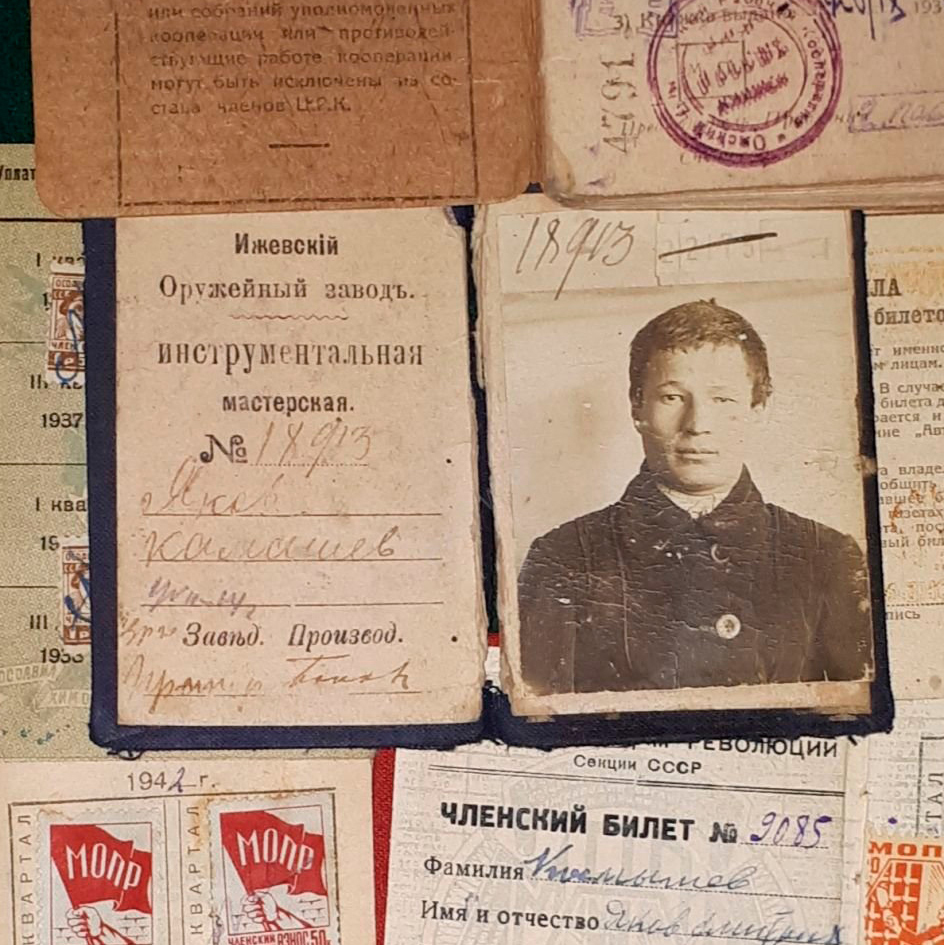 или собраний уполномоченных
кооперации или противодей-
ствующие работе кооперации
могут быть исключены из со-
става членов Ц.Р.К.
3) Книжка выдана
193
4791
Омский
Уплат
Ижевскій
Оружейный заводъ.
инструментальная
мастерская.
№ 18913
Яков
Камышев
Завѣд. Производ.
18913
I ква
1937
I ква
19
III
1938
ЛА
билето
т именно
м лицам.
В случа
билета д
рается и
ние „Авт
а владел
общить
газетах
та, пос
вый бил
пись
1942 г.
КВАРТАЛ
МОПР
КВАРТАЛ
МОПР
ЧЛЕНСКИЙ ВЗНОС 50к
РЕВОЛЮЦИИ
Секции СССР
ЧЛЕНСКИЙ БИЛЕТ № 9085
Фамилия Камышев
Имя и отчество Яков
ТАЛ
МОП